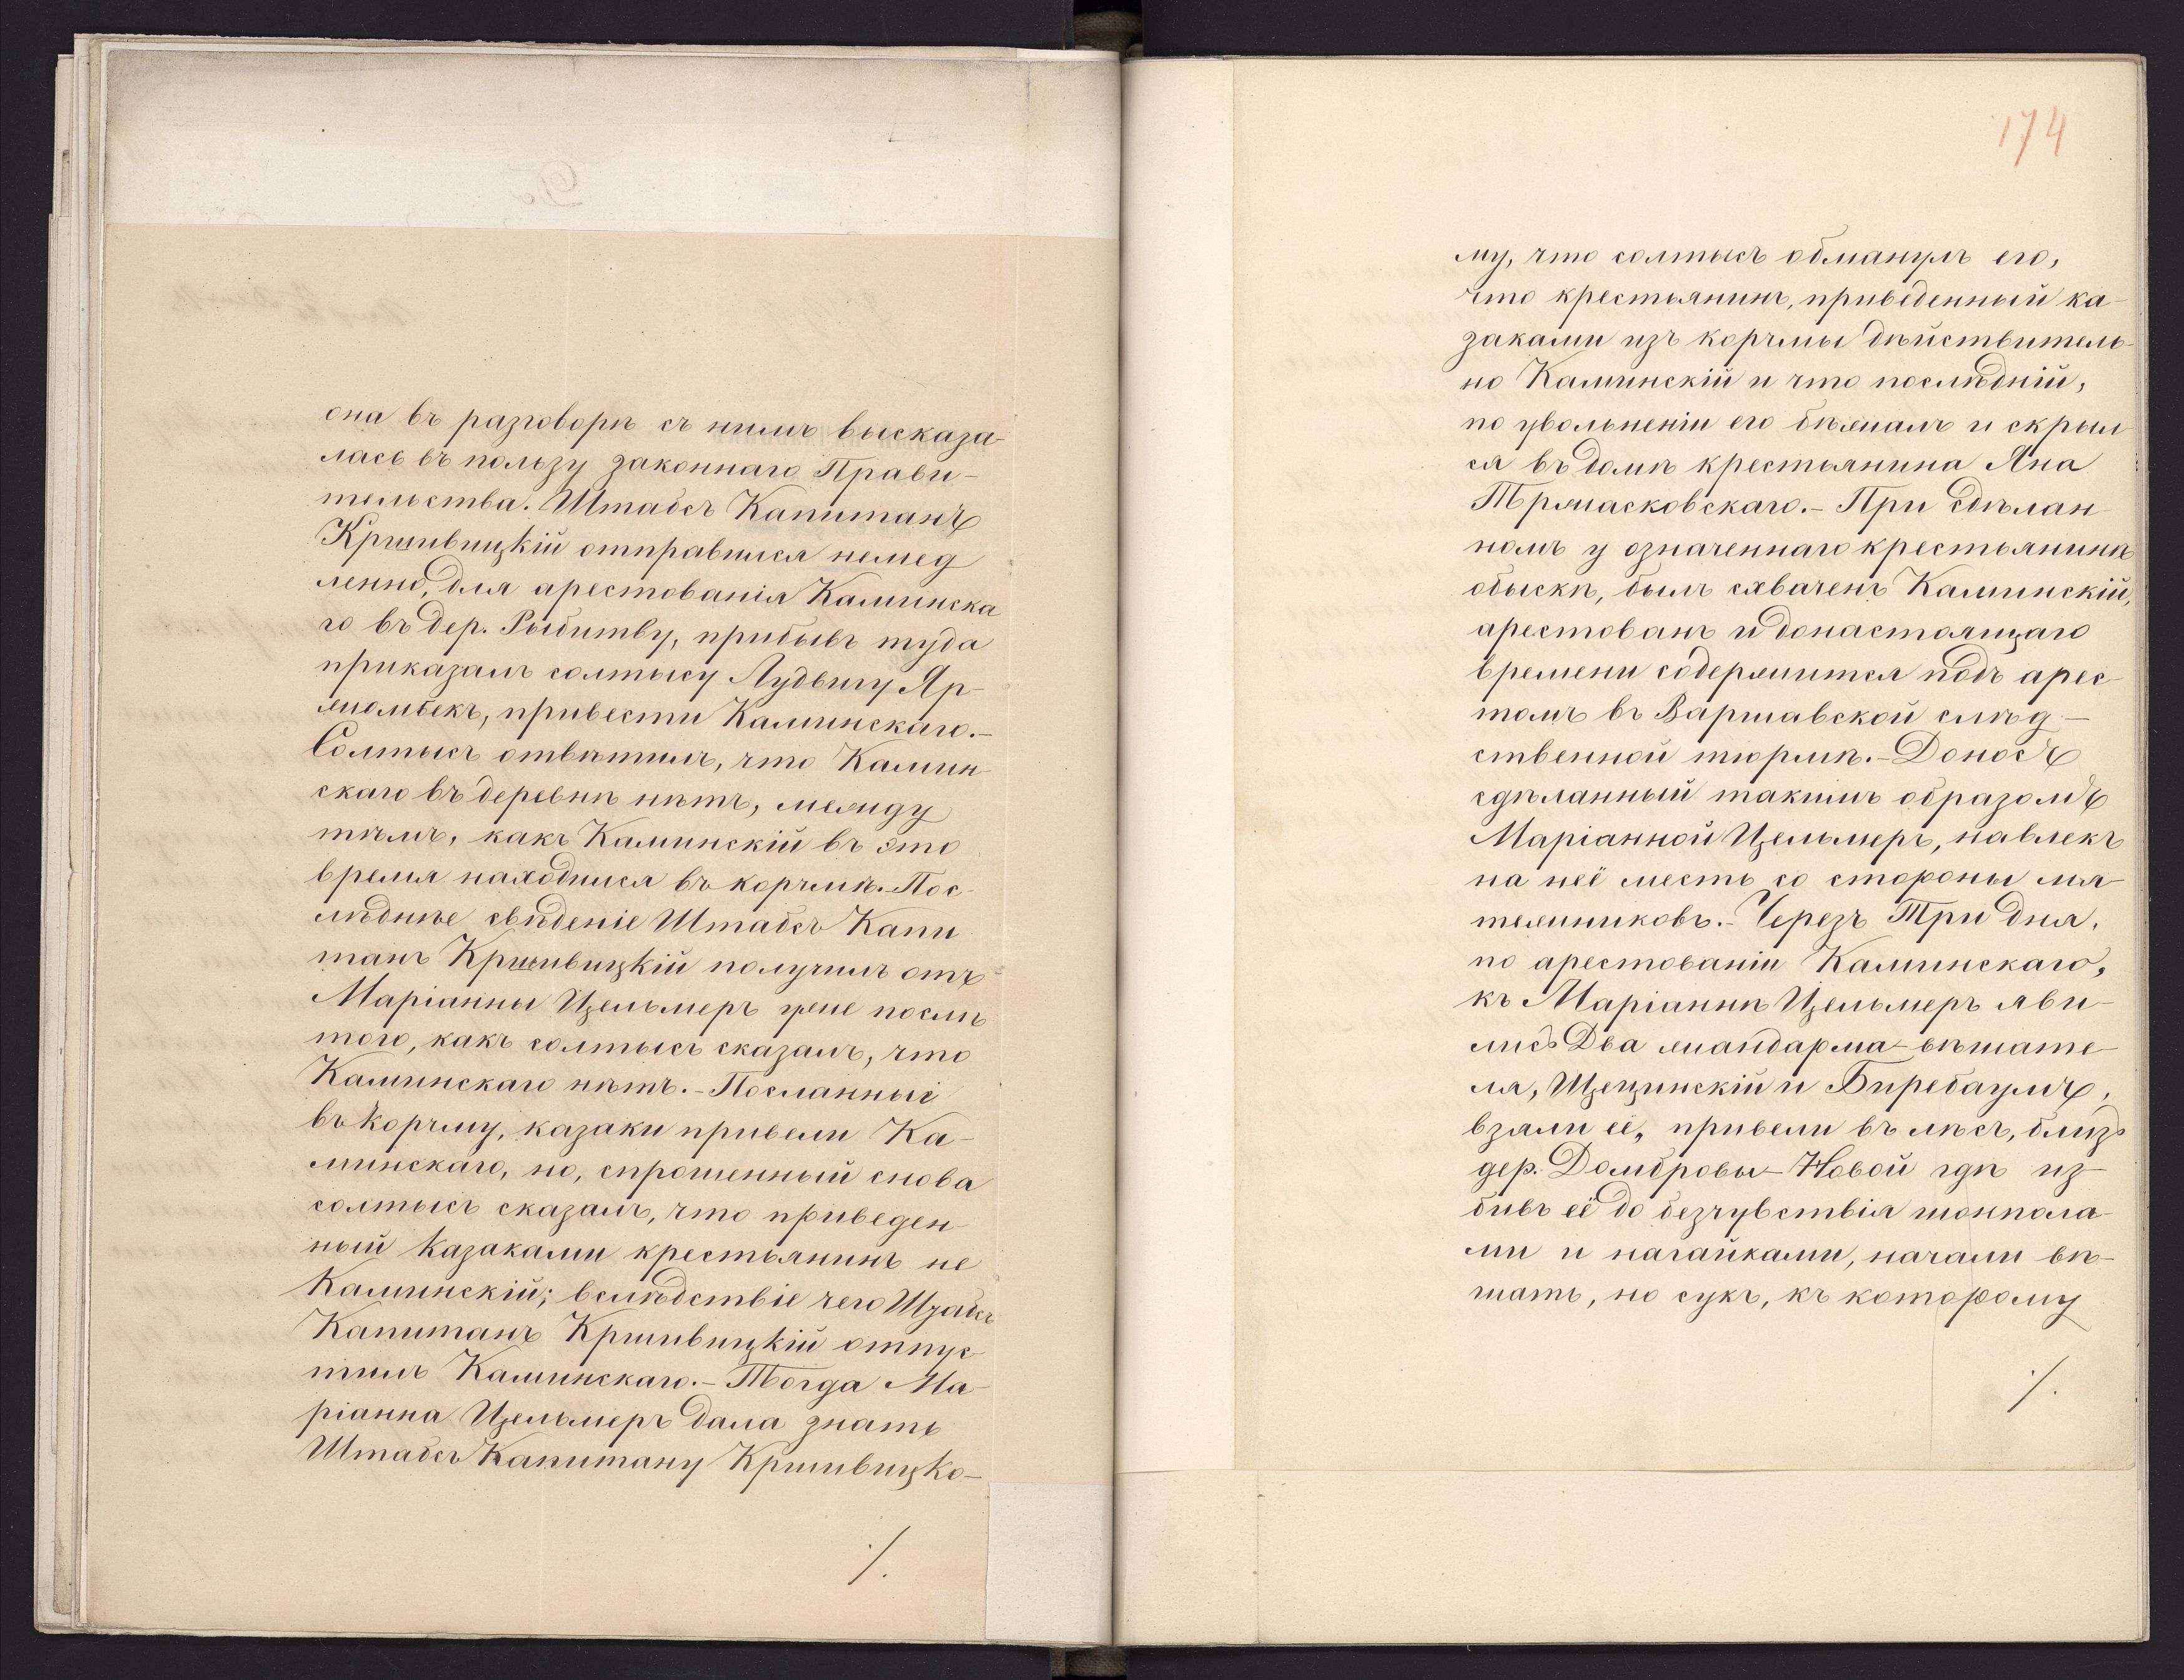 она въ разговорѣ съ нимъ высказа-
лась въ пользу законнаго Прави-
тельства. Штабсъ Капитанъ
Кршивицкій отправился немед
ленно, для арестованія Каминска
го въ дер. Рыбитву, прибывъ туда
приказалъ солтысу Лудвигу Яр-
жомбекъ, привести Каминскаго.-
Солтысъ отвѣтилъ, что Камин
скаго въ деревнѣ нѣтъ, между
тѣмъ, какъ Каминскій въ это
время находился въ корчмѣ. Пос-
лѣднѣе свѣденіе Штабсъ Капи
танъ Кршивицкій получилъ отъ
Маріанны Цельмеръ уже послѣ
того, какъ солтысъ сказалъ, что
Каминскаго нѣтъ.- Посланные
въ корчму, казаки привели Ка-
минскаго, но, спрошенный снова
солтысъ сказалъ, что приведен
ный казаками крестьянинъ не
Каминскій; вслѣдствіе чего Штабсъ
Капитанъ Кршивицкій отпус
тилъ Каминскаго.- Тогда Ма-
ріанна Цельмеръ дала знать
Штабсъ Капитану Кршивицко-
./.
174
му, что солтысъ обманулъ его,
что крестьянинъ, приведенный ка-
заками изъ корчмы дѣйствитель-
но Каминскій и что послѣдній,
по увольненіи его бѣжалъ и скрыл
ся въ домѣ крестьянина Яна
Тржасковскаго.- При сдѣлан
номъ у означеннаго крестьянина
обыскѣ, былъ схваченъ Каминскій,
арестованъ и донастоящаго
времени содержится подъ арес-
томъ въ Варшавской слѣд-
ственной тюрмѣ.- Доносъ
сдѣланный такимъ образомъ
Маріанной Цельмеръ, навлекъ
на неё месть со стороны мя-
тежниковъ.- Черезъ Три дня,
по арестованіи Каминскаго,
къ Маріаннѣ Цельмеръ яви-
лисъ Два жандарма-вѣшате-
ля, Щецинскій и Биребаумъ,
взяли её, привели въ лѣсъ, близъ
дер. Домбровы-Новой гдѣ из-
бивъ её до безчувствія шомпола
ми и нагайками, начали вѣ-
шать, но сукъ, къ которому
./.